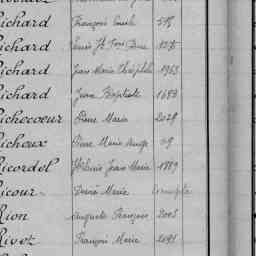 Richard François Emile 578
Richard Louis 1375
Richard Jean Marie Théophile 1963
Richard Jean Baptiste 1683
Richecoeur Pierre Marie 2029
Richeux Pierre Marie Ange 29
Ricordel Jean Marie 1889
Ricour Désiré Marie
Rion Auguste François 2003
Riot François Marie 2091